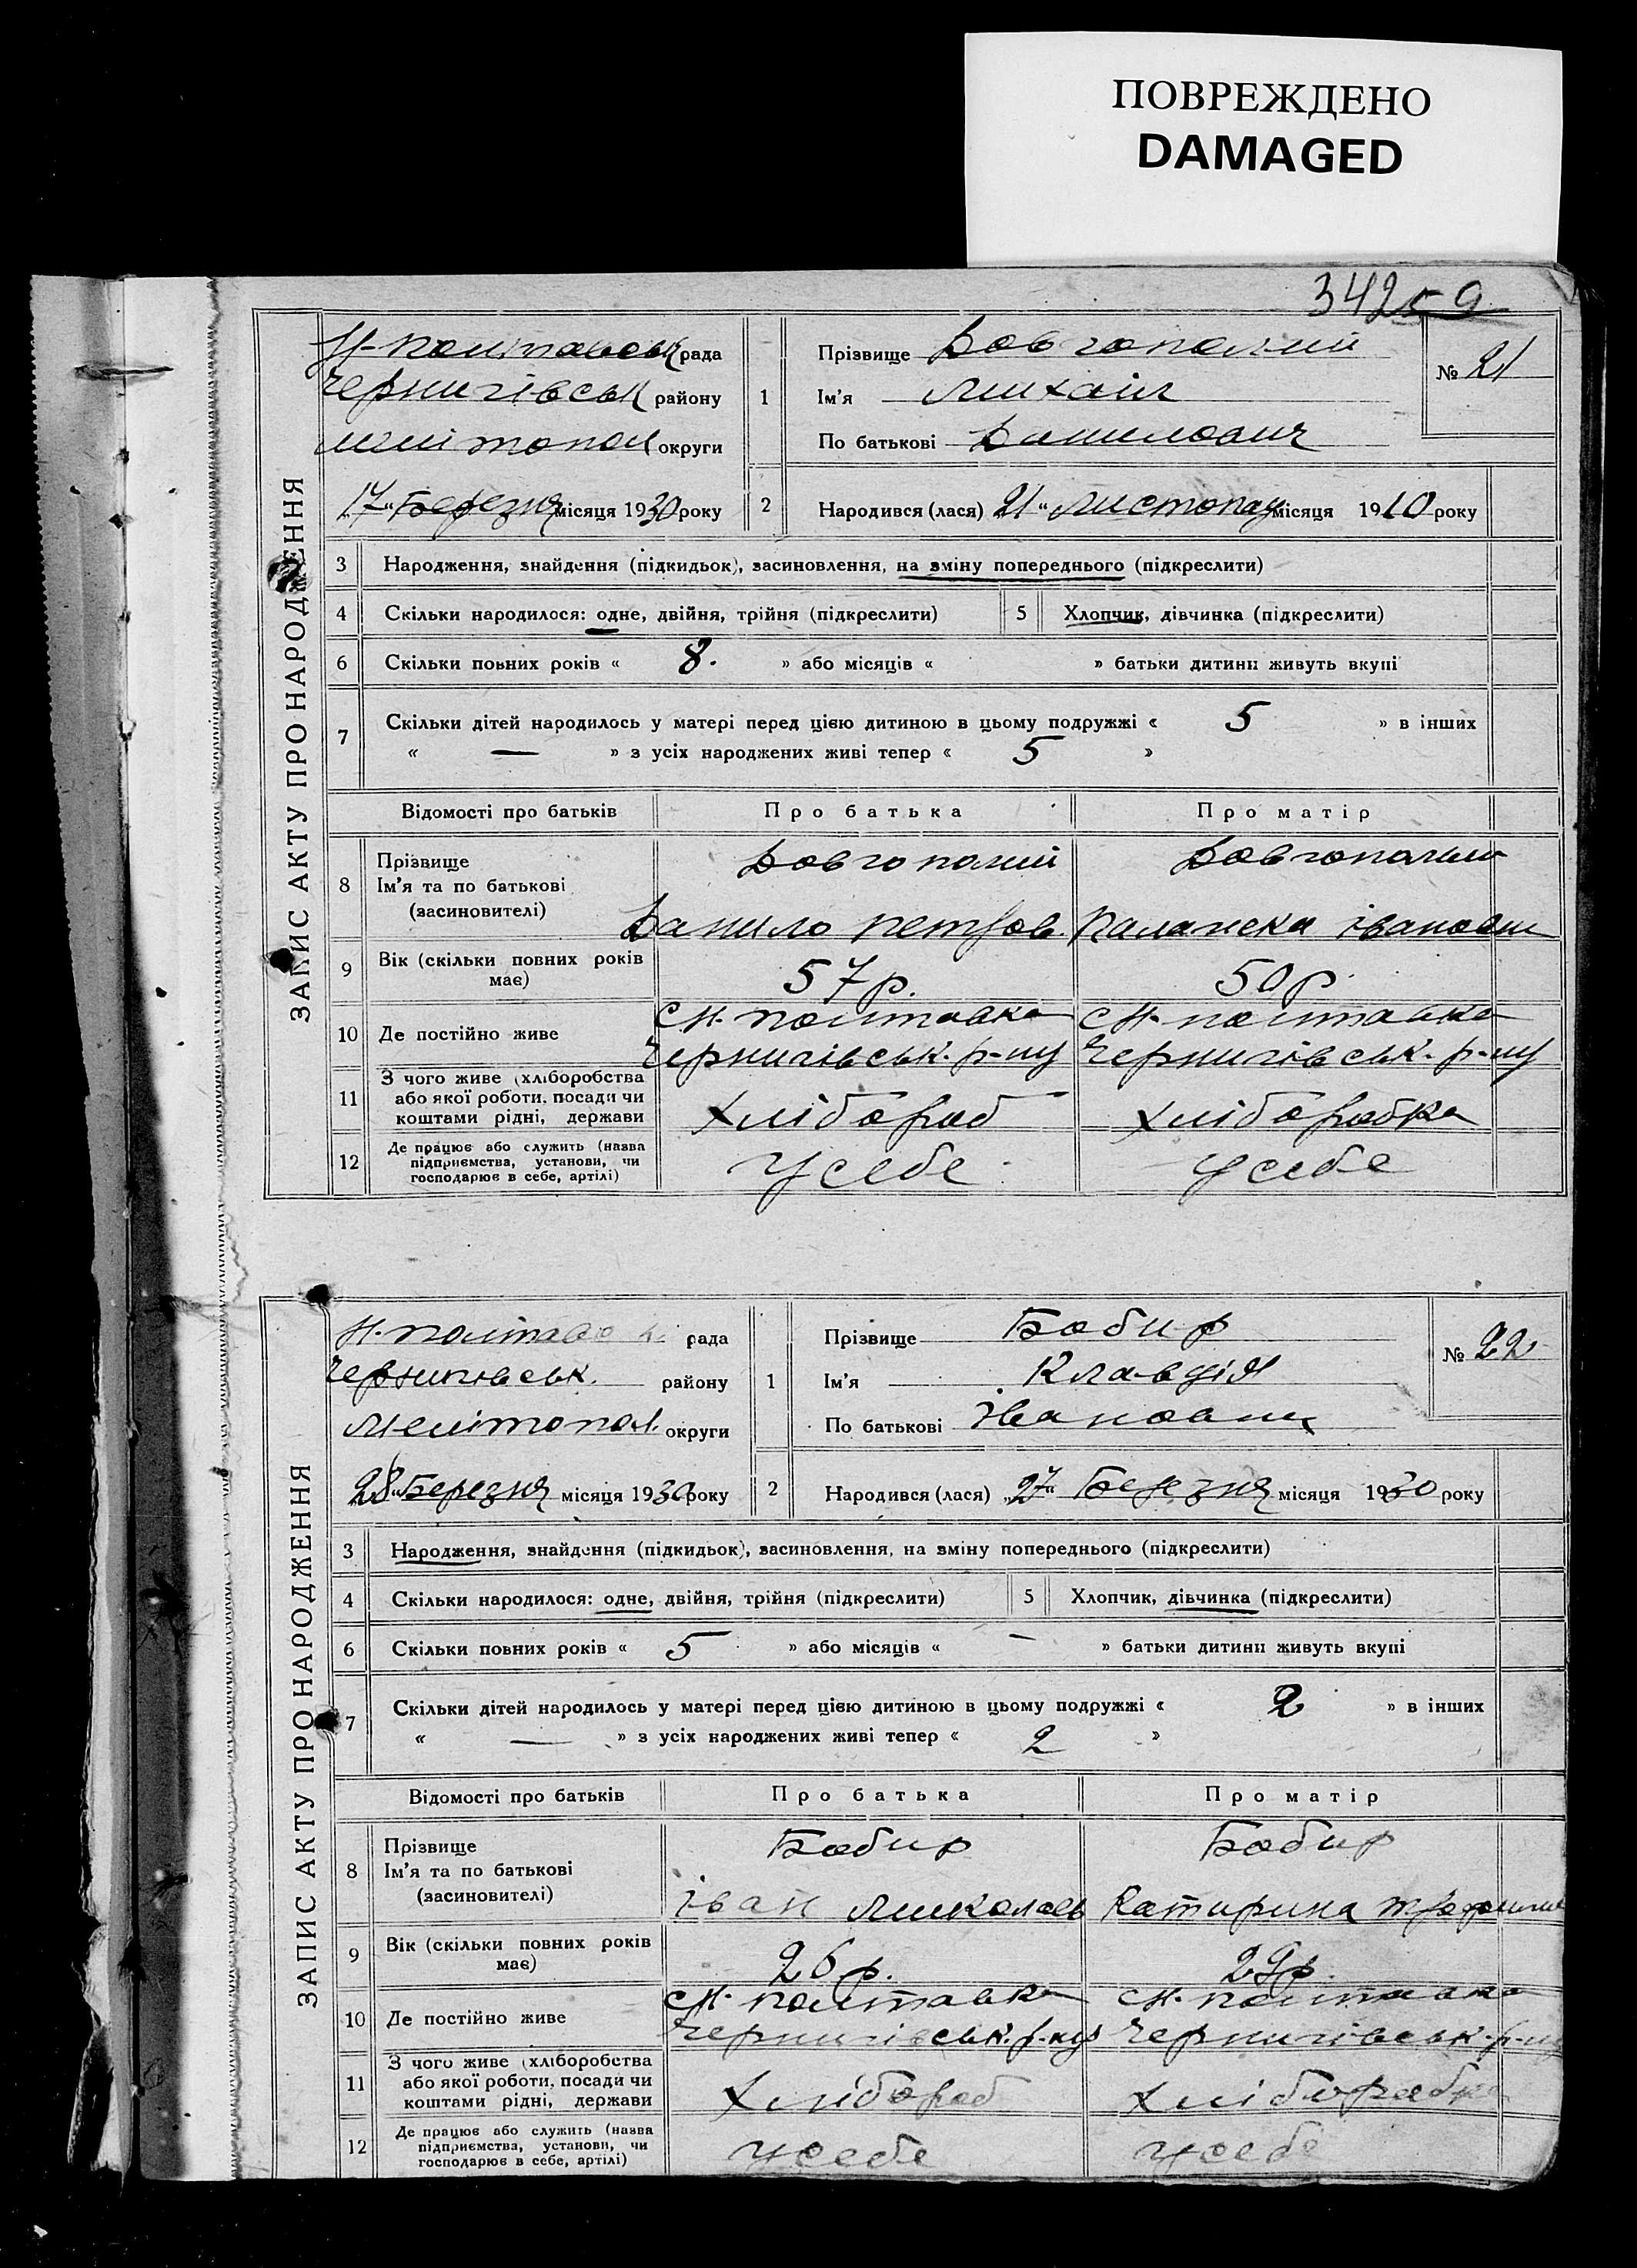 ПОВРЕЖДЕНО
DAMAGED
342
ЗАПИС АКТУ ПРО НАРОДЖЕННЯ
Н-Полтавськ рада
Чернигівськ району
Меліtопол округи
„17“ Березня місяця 1930 року
1
Прізвище Довгополий
Ім'я Михаіл
По батькові Данилович
№ 21
2
Народився (лася) 21 “ Листопад місяця 1910 року
3 Народження, знайдення (підкидьок), засиновлення, на зміну попереднього (підкреслити)
4 Скільки народилося: одне, двійня, трійня (підкреслити) 5 Хлопчик, дівчинка (підкреслити)
6 Скільки повних років « 8. » або місяців « » батьки дитини живуть вкупі
7 Скільки дітей народилось у матері перед цією дитиною в цьому подружжі « 5 » в інших
« — » з усіх народжених живі тепер « 5 »
Відомості про батьків Про батька Про матір
8 Прізвище
Ім'я та по батькові
(засиновителі)
Довгополий
Данило Петров.
Довгополи
Палажска Івановн
9 Вік (скільки повних років має) 57 р. 50 р.
10 Де постійно живе
с Н-Полтавка
Чернигівськ. р-ну
с Н-Полтавка
Чернигівськ. р-ну
11 З чого живе (хліборобства
або якої роботи, посади чи
коштами рідні, держави
Хлібороб
Хліборобка
12 Де працює або служить (назва
підприємства, установи, чи
господарює в себе, артілі)
У себе
У себе
ЗАПИС АКТУ ПРО НАРОДЖЕННЯ
Н-Полтавськ. рада
Чернигівськ. району
Мелітопол. округи
28 “ Березня місяця 1930 року
1
Прізвище Бабир
Ім'я Клавдія
По батькові Івановна
№ 22
2
Народився (лася) „27“ Березня місяця 1930 року
3 Народження, знайдення (підкидьок), засиновлення, на зміну попереднього (підкреслити)
4 Скільки народилося: одне, двійня, трійня (підкреслити) 5 Хлопчик, дівчинка (підкреслити)
6 Скільки повних років « 5 » або місяців « — » батьки дитини живуть вкупі
7 Скільки дітей народилось у матері перед цією дитиною в цьому подружжі « 2 » в інших
« — » з усіх народжених живі тепер « 2 »
Відомості про батьків Про батька Про матір
8 Прізвище
Ім'я та по батькові
(засиновителі)
Бабир
Іван Миколаєв
Бабир
Катирина
9 Вік (скільки повних років має) 26 р. 29 р.
10 Де постійно живе
с Н-Полтавка
Чернигівськ. р-ну
с Н-Полтавка
Чернигівськ. р-ну
11 З чого живе (хліборобства
або якої роботи, посади чи
коштами рідні, держави
Хлібороб
Хліборобка
12 Де працює або служить (назва
підприємства, установи, чи
господарює в себе, артілі)
У себе
У себе